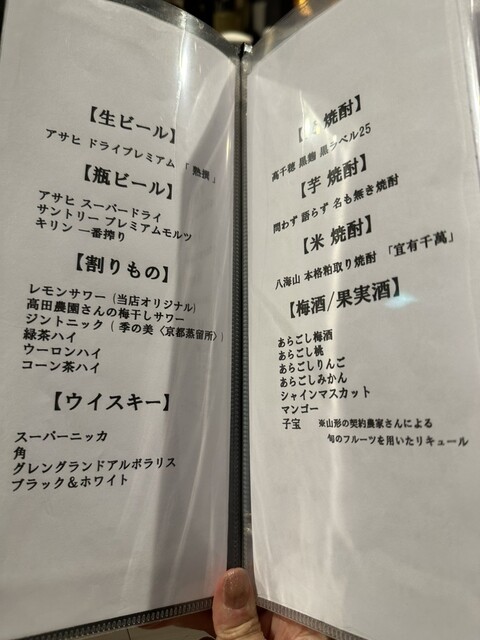 【生ビール】
アサヒ ドライプレミアム 「 熟撰 」
【瓶ビール】
アサヒ スーパードライ
サントリー プレミアムモルツ
キリン 一番搾り
【割りもの】
レモンサワー (当店オリジナル)
高田農園さんの梅干しサワー
ジントニック ( 季の美〈京都蒸留所〉)
緑茶ハイ
ウーロンハイ
コーン茶ハイ
【ウイスキー】
スーパーニッカ
角
グレングランドアルボラリス
ブラック＆ホワイト
焼酎】
高千穂 黒麹 黒ラベル25
【芋 焼酎】
問わず 語らず 名も無き焼酎
【米 焼酎】
八海山 本格粕取り焼酎 「宜有千萬」
【梅酒/果実酒】
あらごし梅酒
あらごし桃
あらごしりんご
あらごしみかん
シャインマスカット
マンゴー
子宝 ※山形の契約農家さんによる
旬のフルーツを用いたリキュール